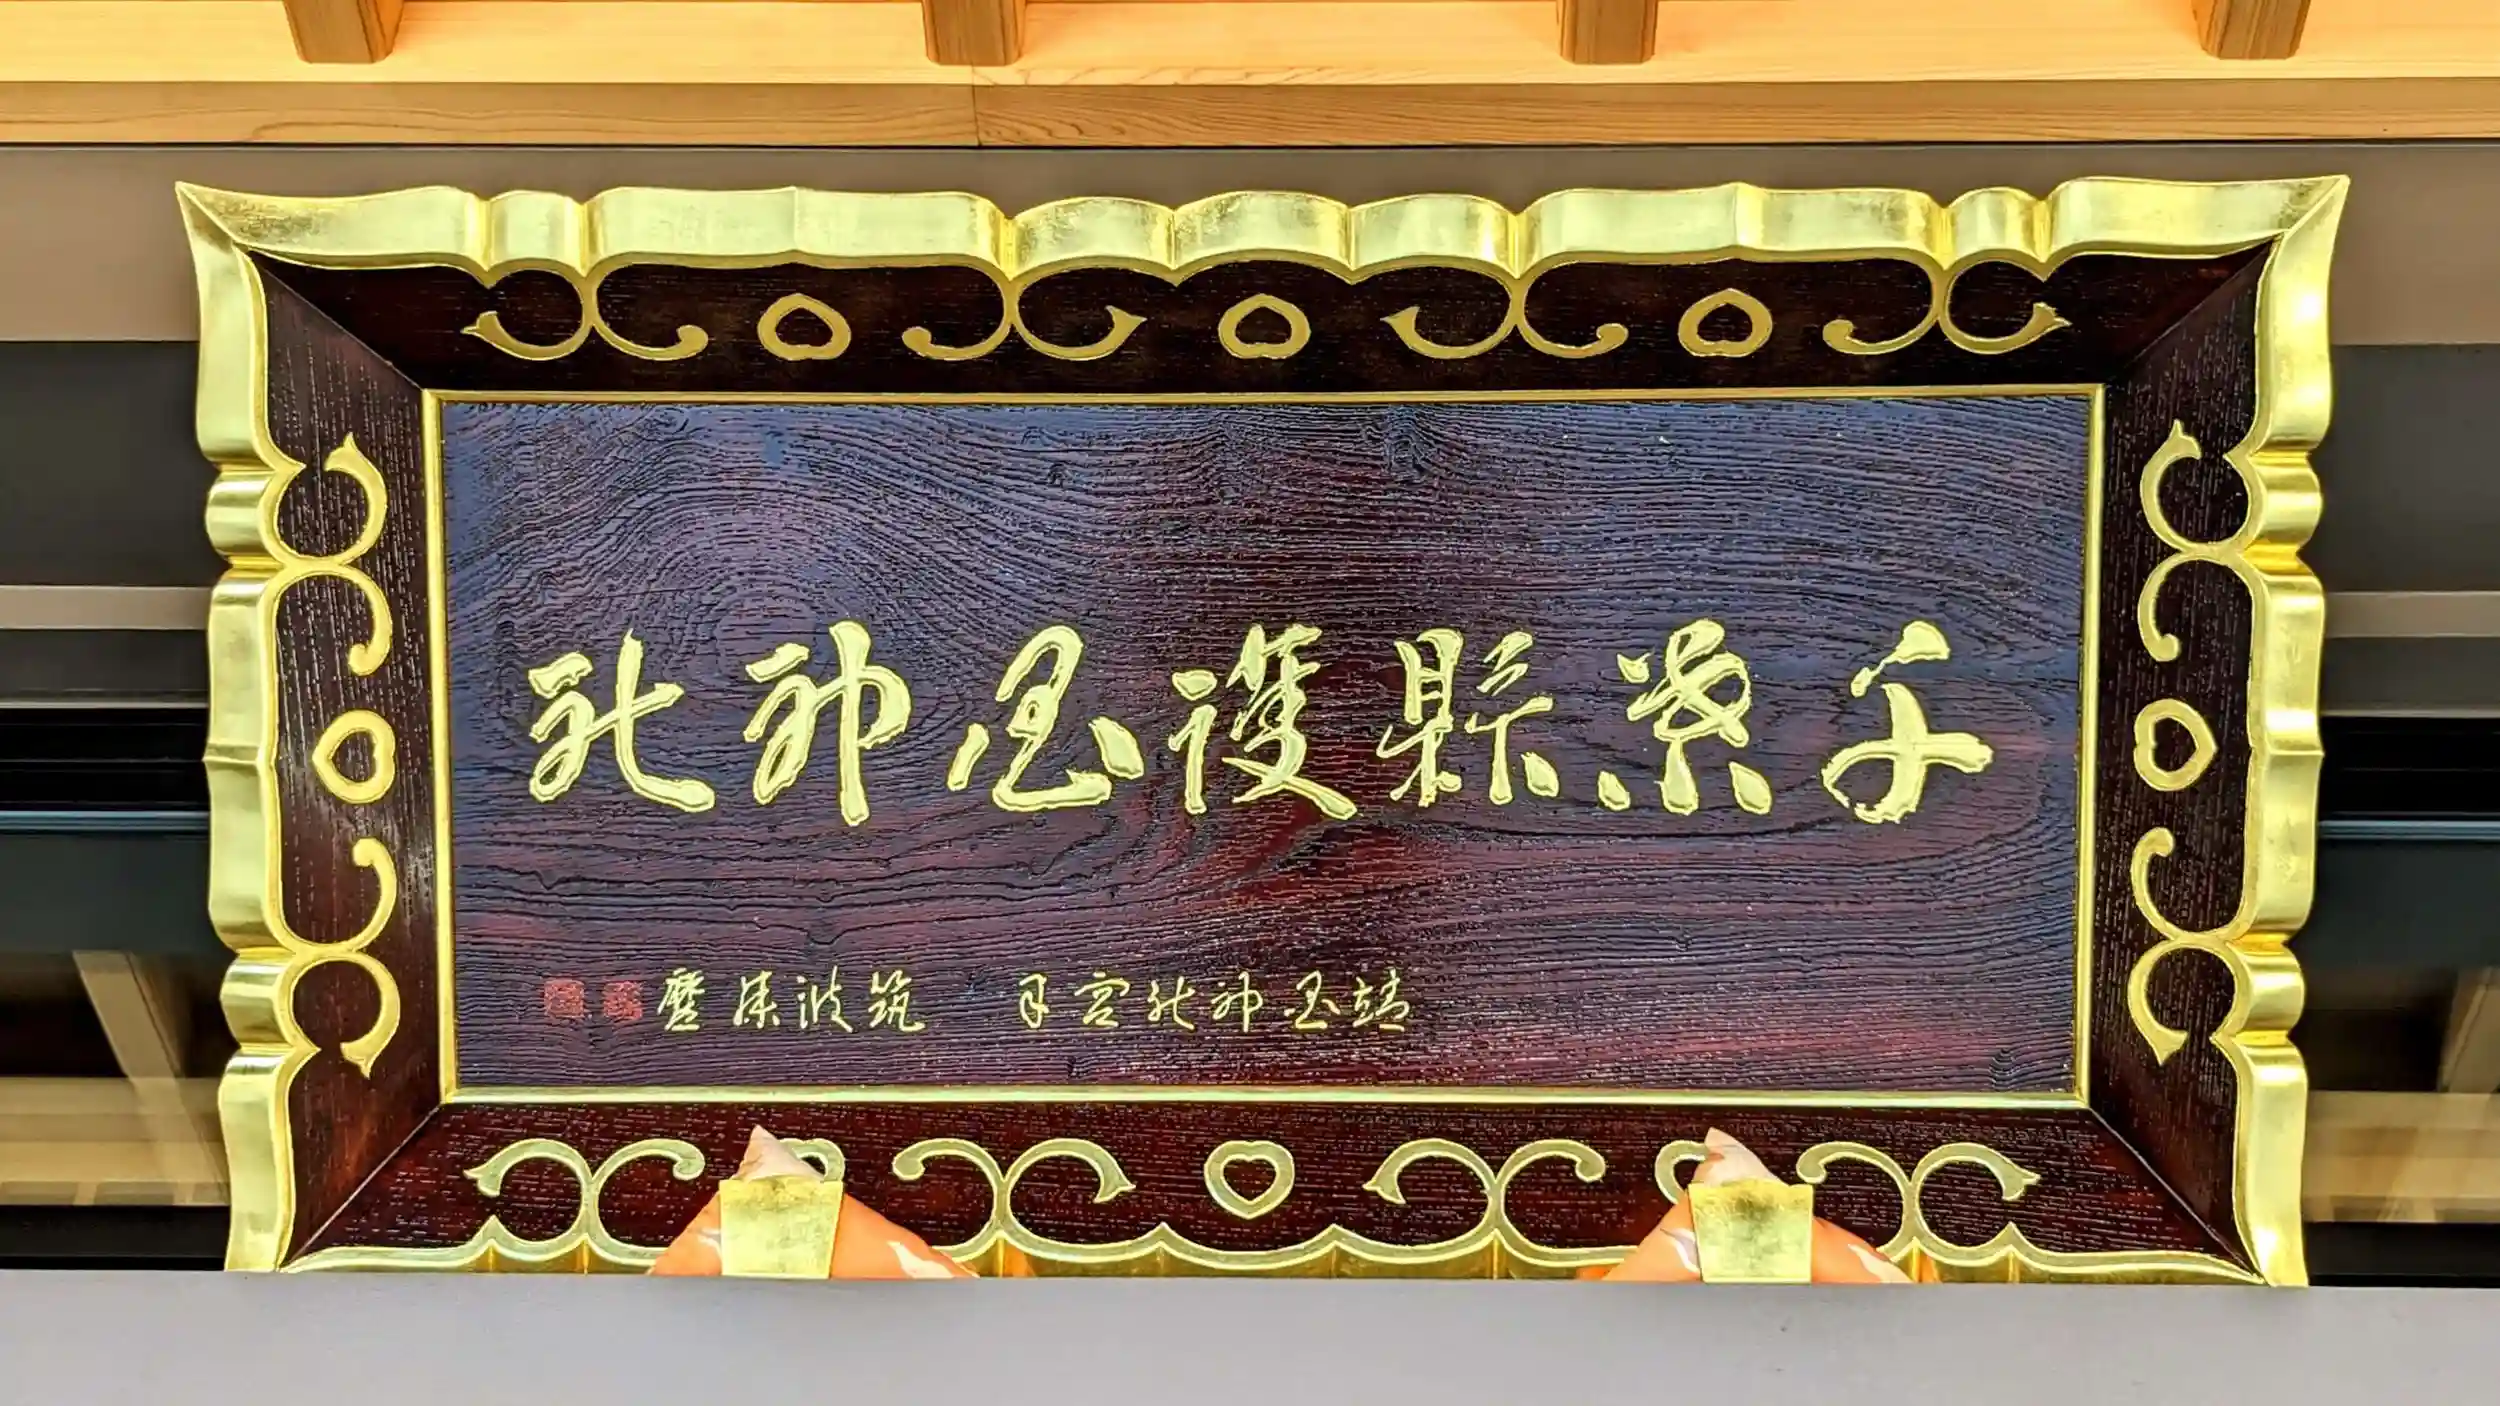 千葉縣護國神社
靖国神社宮司　筑波藤麿